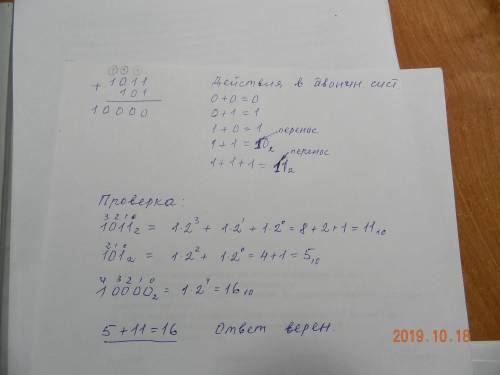 1 1 1
+ 1011
101
10000
Действия в двоичн сист
0+0=0
0+1=1
1+0=1 перенос
1+1=10₂
перенос
1+1+1=11₂
Проверка:
3 2 1 0
1011₂ = 1·2³ + 1·2¹ + 1·2⁰ = 8+2+1 = 11₁₀
2 1 0
101₂ = 1·2² + 1·2⁰ = 4+1 = 5₁₀
4 3 2 1 0
10000₂ = 1·2⁴ = 16₁₀
5+11=16 Ответ верен.
2019.10.18